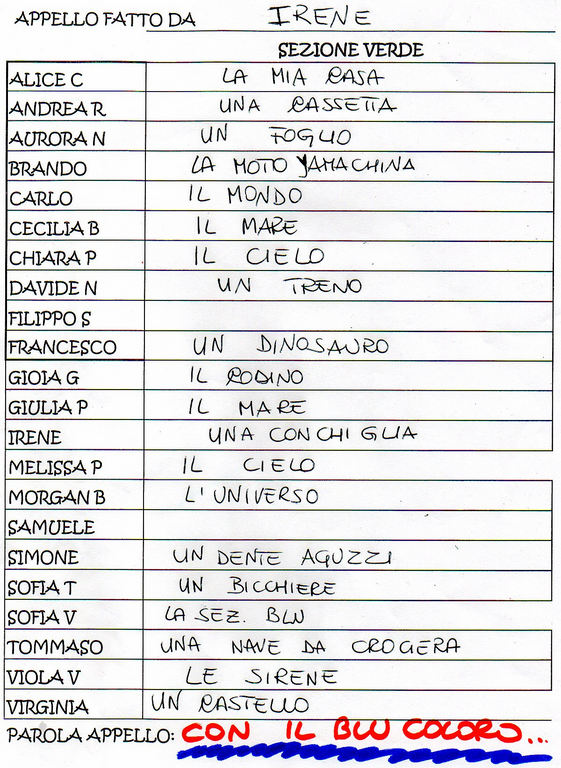 APPELLO FATTO DA IRENE
SEZIONE VERDE
ALICE C LA MIA CASA
ANDREA R UNA CASSETTA
AURORA N UN FOGLIO
BRANDO LA MOTO YAMACHINA
CARLO IL MONDO
CECILIA B IL MARE
CHIARA P IL CIELO
DAVIDE N UN TRENO
FILIPPO S
FRANCESCO UN DINOSAURO
GIOIA G IL RODINO
GIULIA P IL MARE
IRENE UNA CONCHIGLIA
MELISSA P IL CIELO
MORGAN B L'UNIVERSO
SAMUELE
SIMONE UN DENTE AGUZZI
SOFIA T UN BICCHIERE
SOFIA V LA SEZ. BLU
TOMMASO UNA NAVE DA CROGERA
VIOLA V LE SIRENE
VIRGINIA UN CASTELLO
PAROLA APPELLO: CON IL BLU COLORO...